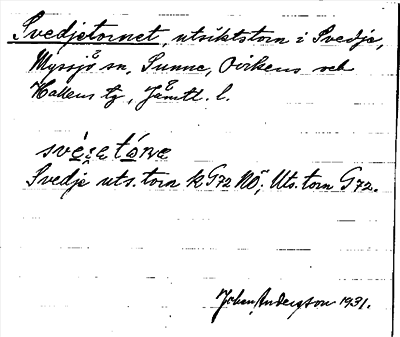 Svedjetornet, utsiktstorn i Svedje,
Myssjö sn, Sunne, Ovikens och
Hallens tg, Jämtl. l.
Svedje uts. torn k G72 NÖ; Uts. torn G72.
Johan Andersson 1931.